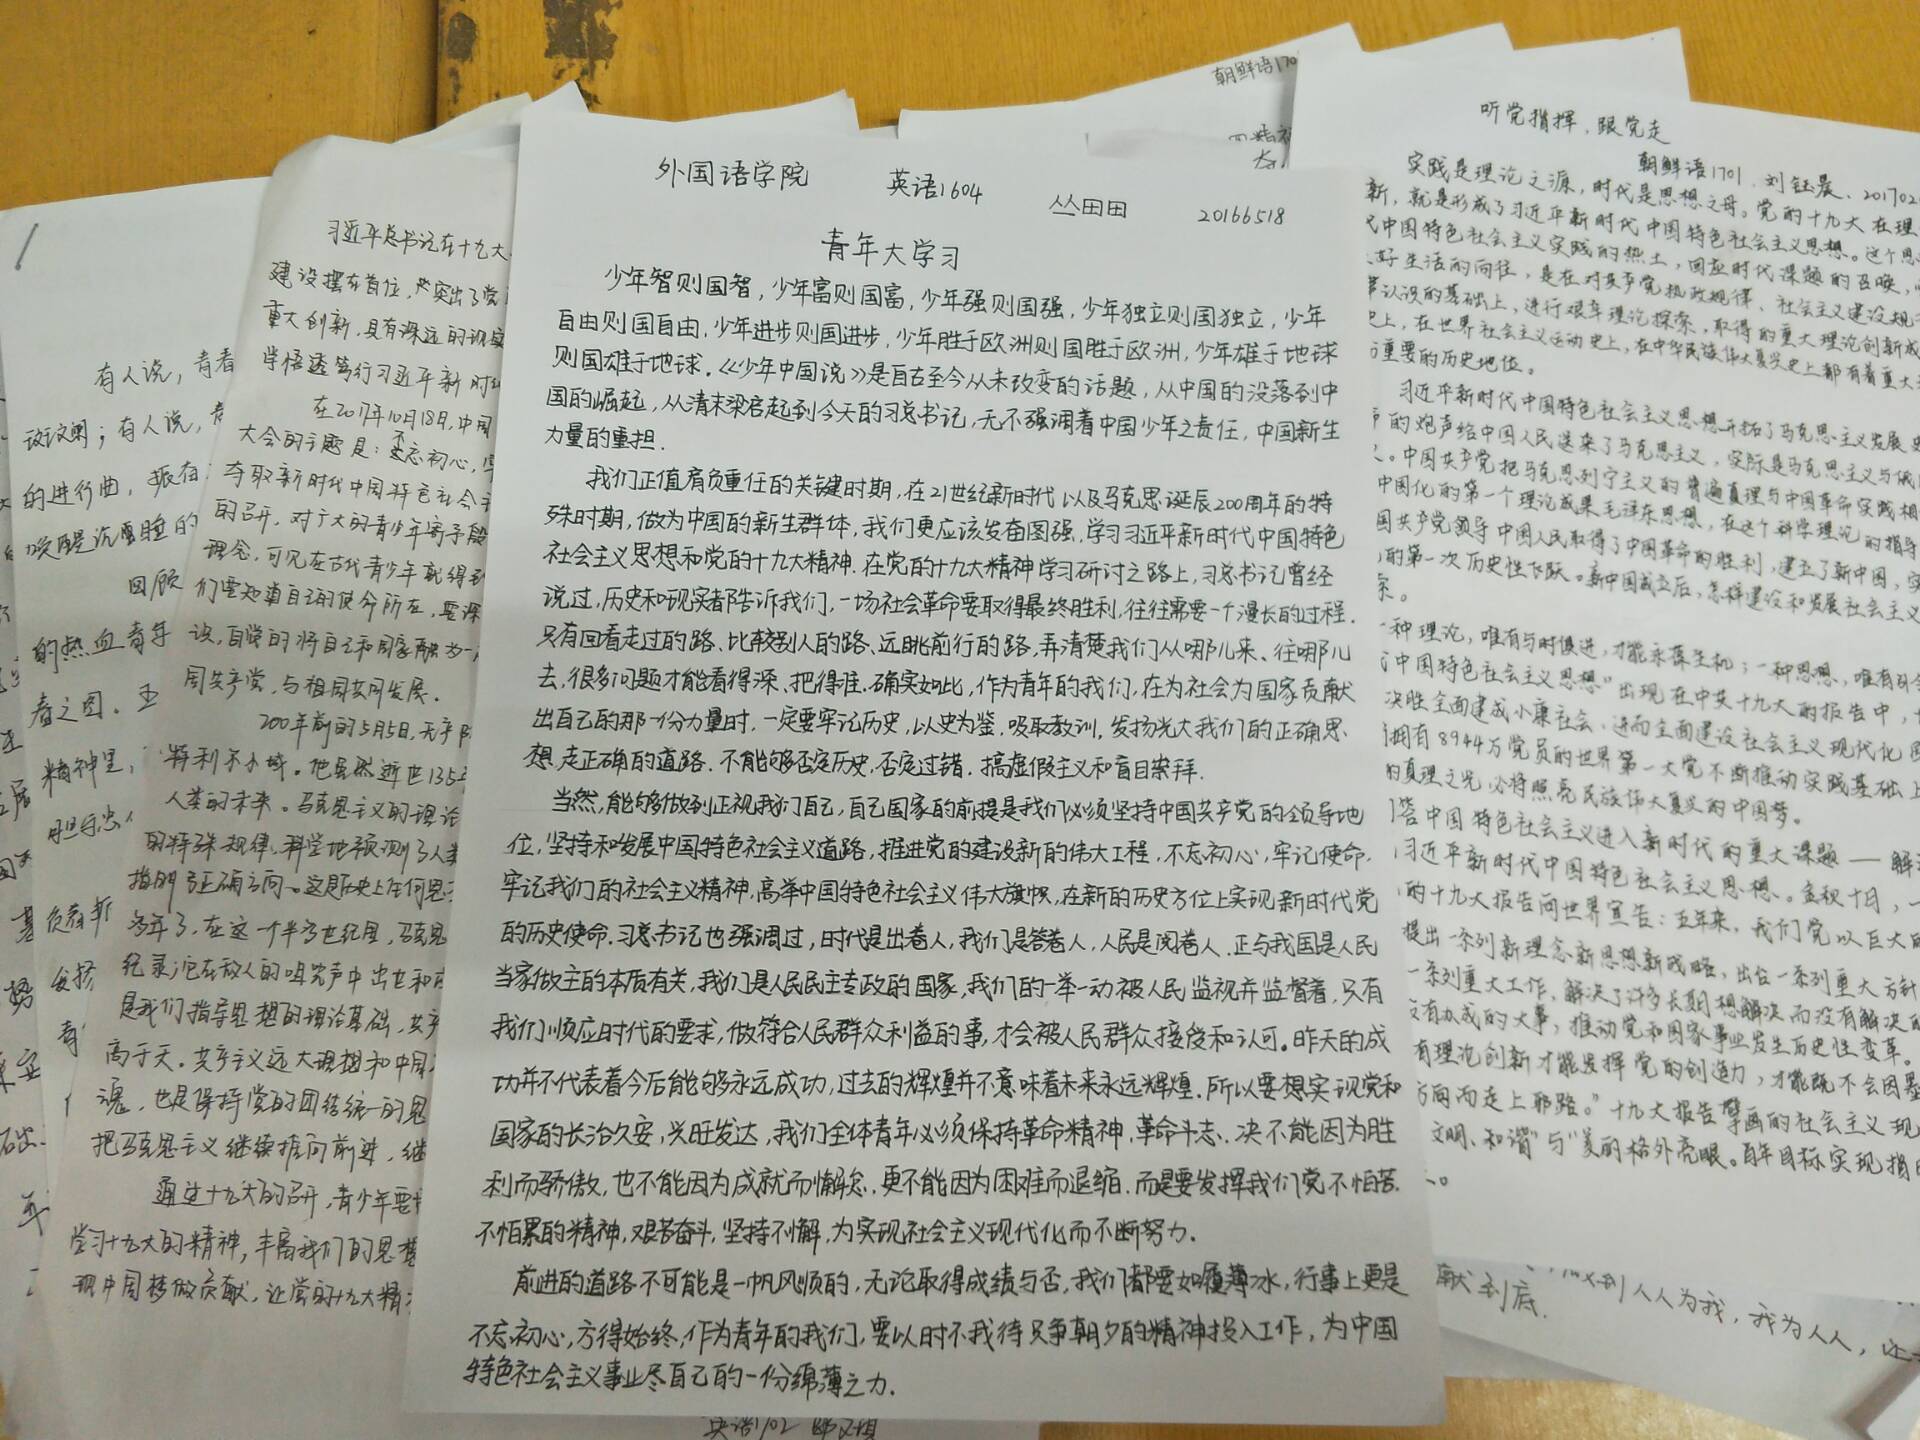 外国语学院 英语1604 丛田田 20166518
青年大学习
少年智则国智，少年富则国富，少年强则国强，少年独立则国独立，少年
自由则国自由，少年进步则国进步，少年胜于欧洲则国胜于欧洲，少年雄于地球
则国雄于地球。《少年中国说》是自古至今从未改变的话题，从中国的没落到中
国的崛起，从清末梁启超到今天的习总书记，无不强调着中国少年之责任，中国新生
力量的重担.
我们正值肩负重任的关键时期，在21世纪新时代以及马克思诞辰200周年的特
殊时期，做为中国的新生群体，我们更应该发奋图强，学习习近平新时代中国特色
社会主义思想和党的十九大精神.在党的十九大精神学习研讨之路上，习总书记曾经
说过，历史和现实都告诉我们，一场社会革命要取得最终胜利，往往需要一个漫长的过程.
只有回看走过的路、比较别人的路、远眺前行的路，弄清楚我们从哪儿来、往哪儿
去，很多问题才能看得深、把得准.确实如此，作为青年的我们，在为社会为国家贡献
出自己的那一份力量时，一定要牢记历史，以史为鉴，吸取教训，发扬光大我们的正确思
想，走正确的道路.不能够否定历史，否定过错，搞虚假主义和盲目崇拜.
当然，能够做到正视我们自己，自己国家的前提是我们必须坚持中国共产党的领导地
位，坚持和发展中国特色社会主义道路，推进党的建设新的伟大工程，不忘初心，牢记使命.
牢记我们的社会主义精神，高举中国特色社会主义伟大旗帜，在新的历史方位上实现新时代党
的历史使命.习总书记也强调过，时代是出卷人，我们是答卷人，人民是阅卷人.正与我国是人民
当家做主的本质有关，我们是人民民主专政的国家，我们的一举一动被人民监视并监督着，只有
我们顺应时代的要求，做符合人民群众利益的事，才会被人民群众接受和认可。昨天的成
功并不代表着今后能够永远成功，过去的辉煌并不意味着未来永远辉煌.所以要想实现党和
国家的长治久安，兴旺发达，我们全体青年必须保持革命精神，革命斗志.决不能因为胜
利而骄傲，也不能因为成就而懈怠.更不能因为困难而退缩.而是要发挥我们党不怕苦.
不怕累的精神，艰苦奋斗，坚持不懈，为实现社会主义现代化而不断努力.
前进的道路不可能是一帆风顺的，无论取得成绩与否，我们都要如履薄冰，行事上更是
不忘初心，方得始终，作为青年的我们，要以时不我待只争朝夕的精神投入工作，为中国
特色社会主义事业尽自己的一份绵薄之力.
英语1702
有人说，青春
的进行曲，振奋
回顾
的热血青年
精神里，
习近平总书记在十九大
建设摆在首位，突出了党
重大创新，具有深远的现实
学悟透笃行习近平新时代
在2017年10月18日，中国
大会的主题是：不忘初心，
夺取新时代中国特色社会主
的召开，对广大的青少年寄予殷
理念，可见在古代青少年就得到
们要知道自己的使命所在，要深
识，自觉的将自己和国家融为一
国共产党，与祖国共同发展.
200年前的5月5日，无产阶
特利尔小城。他虽然逝世135
人类的未来。马克思主义的理论
的特殊规律，科学地预测了人类
指明了正确方向。这是历史上任何思
多年了，在这一个半多世纪里，马克思
是我们指导思想的理论基础，共产
高于天。共产主义远大理想和中国
魂，也是保持党的团结统一的思
把马克思主义继续推向前进，继
通过十九大的召开，青少年要
学习十九大的精神，丰富我们的思想
现中国梦做贡献，让党的十九大精
朝鲜语170
听党指挥，跟党走
朝鲜语1701 刘钰晨 201702
实践是理论之源，时代是思想之母。党的十九大在理
新，就是形成了习近平新时代中国特色社会主义思想。这个思
代中国特色社会主义实践的热土，回应时代课题的召唤，
好生活的向往，是在对共产党执政规律、社会主义建设规
认识的基础上，进行艰辛理论探索，取得的重大理论创新成
史上，在世界社会主义运动史上，在中华民族伟大复兴史上都有着重大
重要的历史地位。
习近平新时代中国特色社会主义思想开拓了马克思主义发展史
声的炮声给中国人民送来了马克思主义，实际是马克思主义与俄
。中国共产党把马克思列宁主义的普遍真理与中国革命实践相
中国化的第一个理论成果毛泽东思想，在这个科学理论的指导
国共产党领导中国人民取得了中国革命的胜利，建立了新中国，实
的第一次历史性飞跃。新中国成立后，怎样建设和发展社会主义
索。
一种理论，唯有与时俱进，才能永葆生机；一种思想，唯有引领
中国特色社会主义思想”出现在中共十九大的报告中，
决胜全面建成小康社会、进而全面建设社会主义现代化国
拥有8944万党员的世界第一大党不断推动实践基础上
的真理之光必将照亮民族伟大复兴的中国梦。
答中国特色社会主义进入新时代的重大课题——解
习近平新时代中国特色社会主义思想。金秋十月，一
的十九大报告向世界宣告：五年来，我们党以巨大的
提出一系列新理念新思想新战略，出台一系列重大方针
一系列重大工作，解决了许多长期想解决而没有解决的
没有办成的大事，推动党和国家事业发生历史性变革。
有理论创新才能发挥党的创造力，才能既不会因墨
方向而走上邪路。”十九大报告擘画的社会主义现
文明、和谐”与“美的格外亮眼。百年目标实现指日
献到底.
人人为我，我为人人，